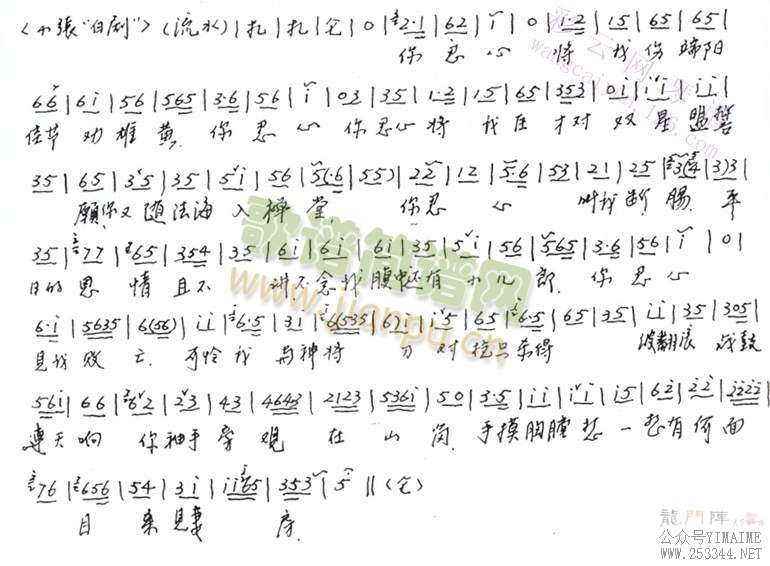 (流水) | 扎 | 扎 | 仓 | 0 | 2·1 | 62 | i | 0 | 1·2 | 15 | 65 | 65 |
你忍心 将我伤端阳
66 | 6i | 56 | 565 | 3·6 | 56 | i | 03 | 35 | 1·2 | 15 | 65 | 353 | 0i | ii | ii |
佳节劝雄黄. 你忍心 你忍心将我
盟誓
35 | 65 | 35 | 35 | 5i | 56 | 5(·6 | 55) | 22 | 12 | 5·6 | 53 | 21 | 25 | 3(4 | 3)3 |
愿你又随法海入禅堂. 你忍心 叫我断肠. 平
35 | 77 | 65 | 354 | 35 | 6i | 6i | 6i | 35 | 5i | 56 | 565 | 3·6 | 56 | i | 0 |
日的恩情且不讲不念我腹中还有小儿郎. 你忍心
6·i | 5635 | 6(56) | ii | 6·5 | 31 | 6(535 | 6)i | i5 | 65 | 6·5 | 65 | 35 | ii | 35 | 305 |
见我败亡. 可怜我与神将
波翻浪战鼓
56i | 66 | 62 | 23 | 43 | 4643 | 2123 | 536i | 50 | 3·5 | ii | ii | i5 | 62 | 22 | 2222 |
连天响 你袖手旁观在山岗. 手摸胸膛想一想有何面
76 | 656 | 54 | 3i | ii65 | 353 | 5 || (仓)
目来见妻房.
歌谱简谱网
www.jianpu.cn
龍門陣
公众号YIMAIME
www.253344.net